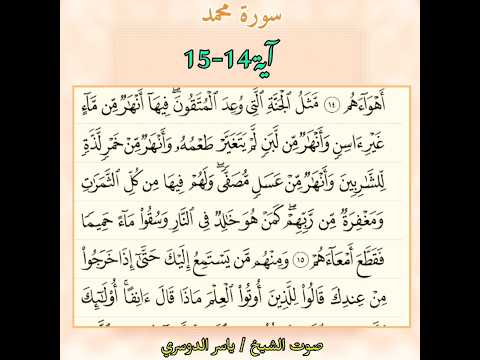 سورة محمد
آية14-15
أَهْوَآءَهُم ١٤ مَّثَلُ ٱلْجَنَّةِ ٱلَّتِى وُعِدَ ٱلْمُتَّقُونَ ۖ فِيهَآ أَنْهَـٰرٌ مِّن مَّآءٍ
غَيْرِ ءَاسِنٍ وَأَنْهَـٰرٌ مِّن لَّبَنٍ لَّمْ يَتَغَيَّرْ طَعْمُهُۥ وَأَنْهَـٰرٌ مِّنْ خَمْرٍ لَّذَّةٍ
لِّلشَّـٰرِبِينَ وَأَنْهَـٰرٌ مِّنْ عَسَلٍ مُّصَفًّى ۖ وَلَهُمْ فِيهَا مِن كُلِّ ٱلثَّمَرَٰتِ
وَمَغْفِرَةٌ مِّن رَّبِّهِمْ ۖ كَمَنْ هُوَ خَـٰلِدٌ فِى ٱلنَّارِ وَسُقُوا۟ مَآءً حَمِيمًا
فَقَطَّعَ أَمْعَآءَهُمْ ١٥ وَمِنْهُم مَّن يَسْتَمِعُ إِلَيْكَ حَتَّىٰٓ إِذَا خَرَجُوا۟
مِنْ عِندِكَ قَالُوا۟ لِلَّذِينَ أُوتُوا۟ ٱلْعِلْمَ مَاذَا قَالَ ءَانِفًا ۚ أُو۟لَـٰٓئِكَ
صوت الشيخ / ياسر الدوسري